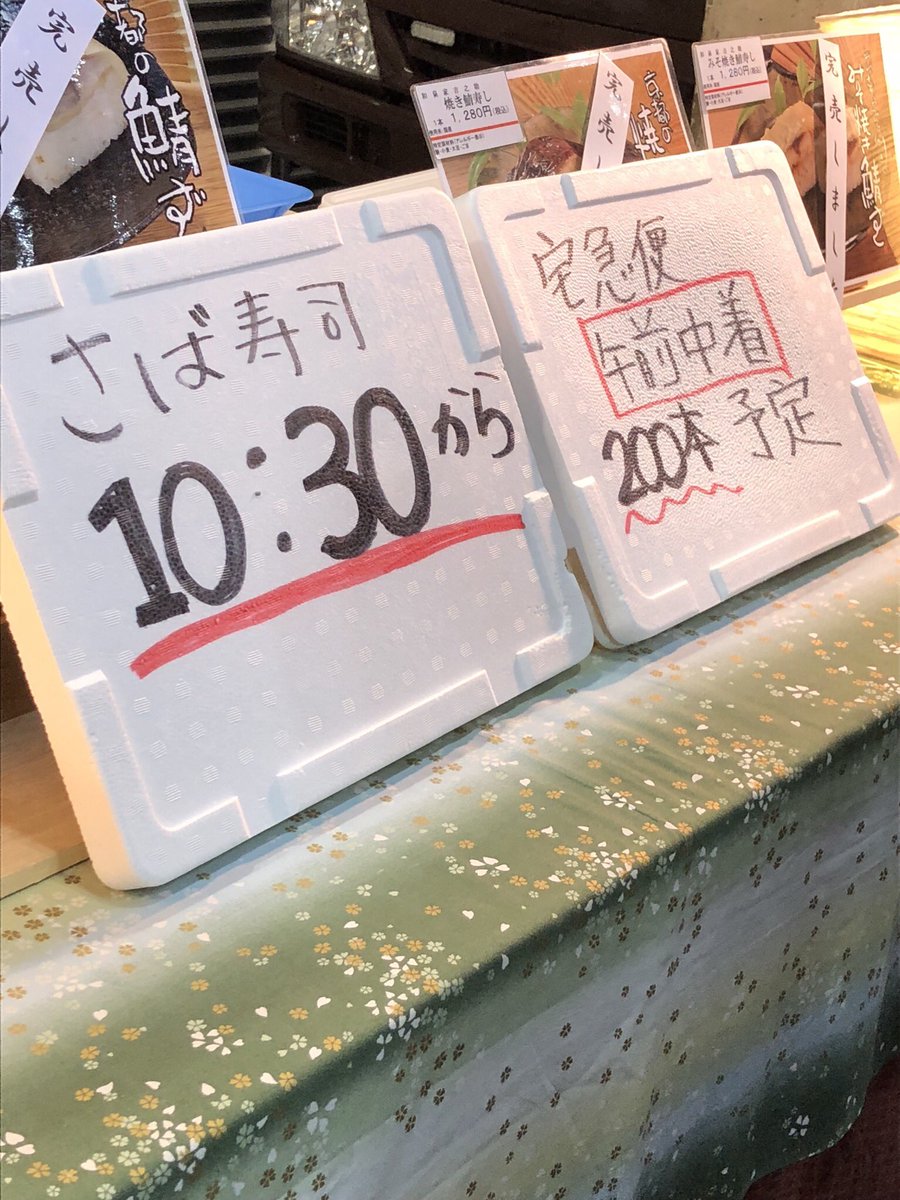 完売し
京都の
鯖ずし
和泉家吉之助
焼き鯖寿し
1本 1,280円(税込)
完売し
京都の
焼
みそ焼き鯖寿し
1本 1,280円(税込)
完売しました
みそ焼き鯖ずし
さば寿司
10:30から
宅急便
午前中着
200本 予定